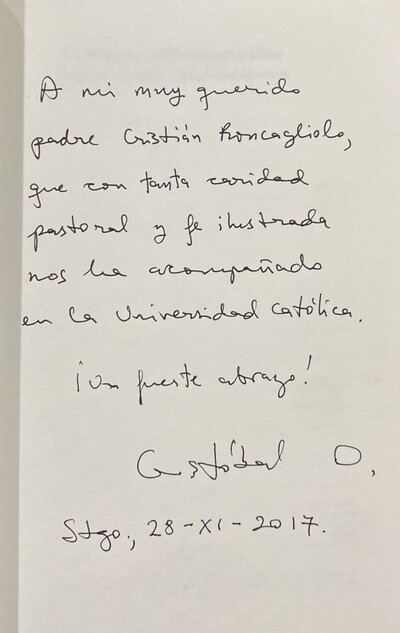 A mi muy querido
padre Cristián Roncagliolo,
que con tanta caridad
pastoral y fe ilustrada
nos ha acompañado
en la Universidad Católica.
¡Un fuerte abrazo!
Cristóbal O,
Stgo., 28-XI-2017.